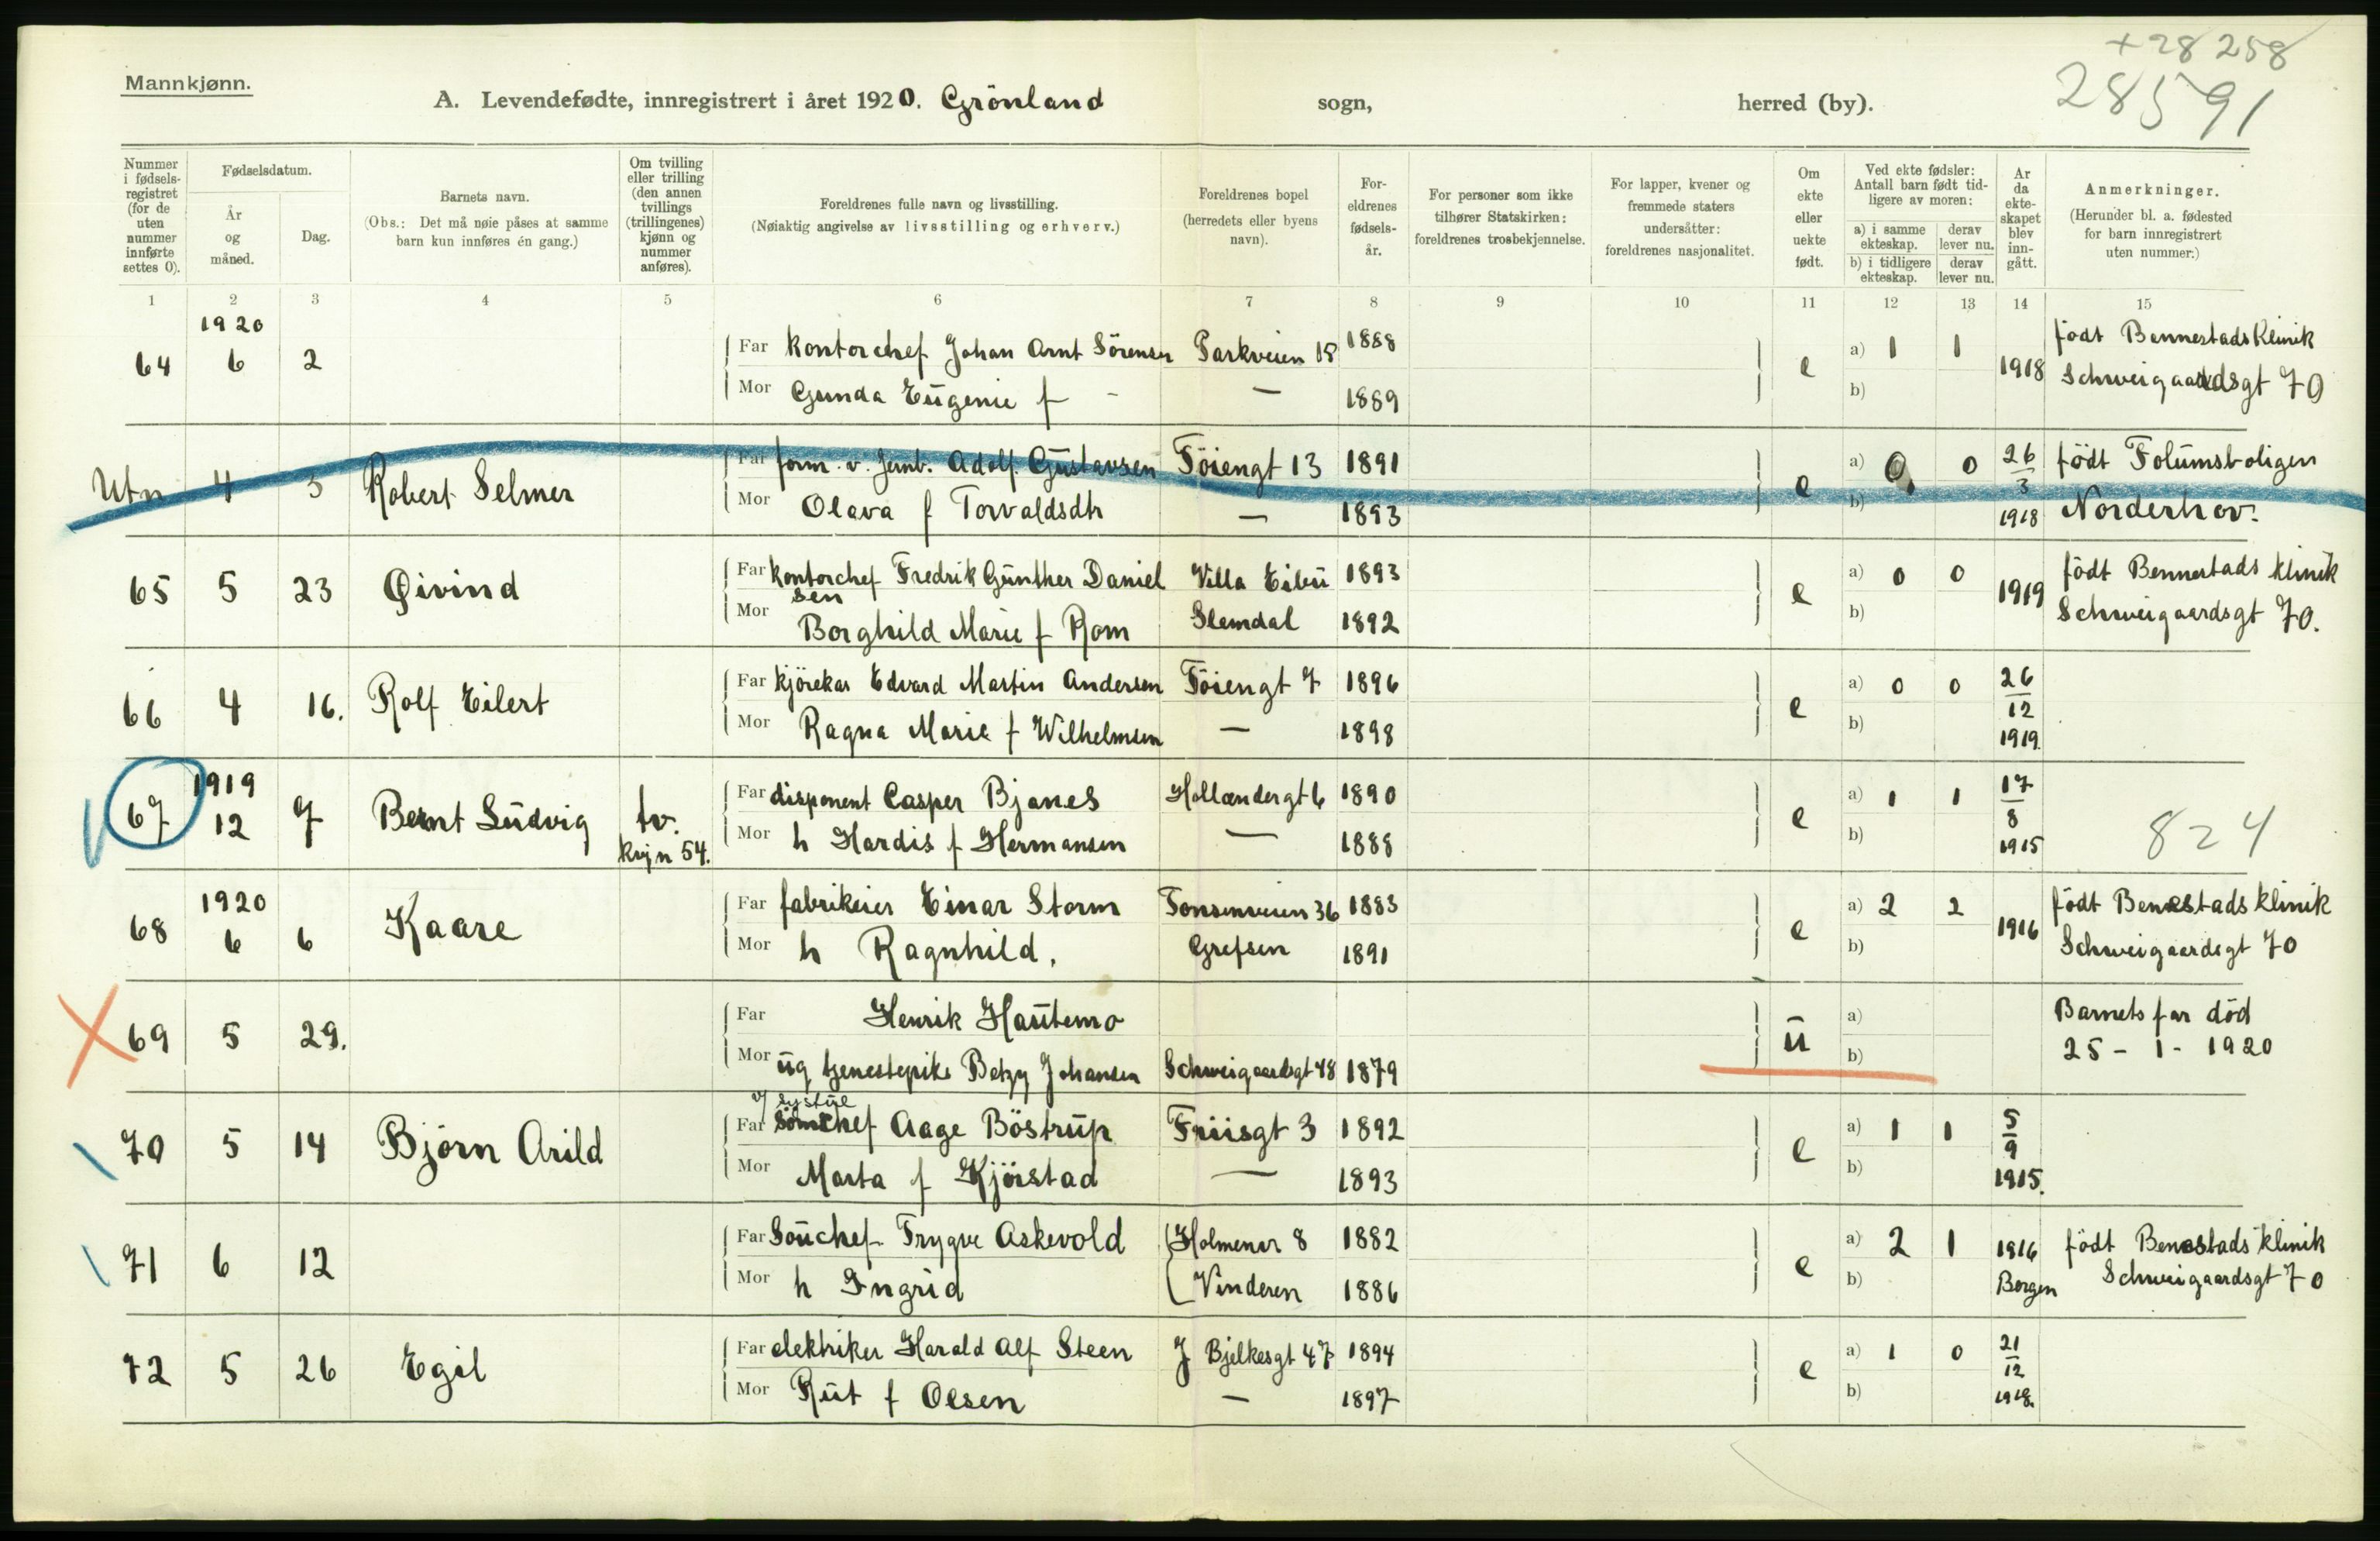 +28 258
28591
Mannkjønn.
A. Levendefødte, innregistrert i året 1920. Grönland sogn, herred (by).
Nummer i fødsels-registret (for de uten nummer innførte settes 0).
Fødselsdatum.
År og måned.
Dag.
Barnets navn.
(Obs.: Det må nøie påses at samme barn kun innføres én gang.)
Om tvilling eller trilling (den annen tvillings (trillingenes) kjønn og nummer anføres).
Foreldrenes fulle navn og livsstilling.
(Nøiaktig angivelse av livsstilling og erhverv.)
Foreldrenes bopel (herredets eller byens navn).
For-eldrenes fødsels-år.
For personer som ikke tilhører Statskirken: foreldrenes trosbekjennelse.
For lapper, kvener og fremmede staters undersåtter: foreldrenes nasjonalitet.
Om ekte eller uekte født.
Ved ekte fødsler: Antall barn født tid-ligere av moren:
a) i samme ekteskap.
b) i tidligere ekteskap.
derav lever nu.
derav lever nu.
År da ekte-skapet blev inn-gått.
Anmerkninger.
(Herunder bl. a. fødested for barn innregistrert uten nummer.)
1 2 3 4 5 6 7 8 9 10 11 12 13 14 15
1920
64 6 2 Far kontorchef Johan Arnt Sörensen Parkveien 18 1888 e a) 1 1 1918 födt Bennestads Klinik
Mor Gunda Eügenie f - — 1889 b) Schweigaardsgt 70
Utn 4 3 Robert Selmer Far form. v. Jernb. Adolf Güstavsen Töiengt 13 1891 e a) 0 0 26/3 1918 födt Folümsboligen
Mor Olava f Torvaldsdtr — 1893 b) Norderhov.
65 5 23 Øivind Far kontorchef Fredrik Günther Daniel Villa Eibü 1893 e a) 0 0 1919 födt Bennestads klinik
sen
Mor Borghild Marie f Rom Slemdal 1892 b) Schweigaardsgt 70.
66 4 16. Rolf Eilert Far kjörekar Edvard Martin Andersen Töiengt 7 1896 e a) 0 0 26/12 1919.
Mor Ragna Marie f Wilhelmsen — 1898 b)
1919
67 12 7 Bernt Lüdvig tv. Far disponent Casper Bjanes Hollændergt 6 1890 e a) 1 1 17/8 1915 824
kvjn 54. Mor h Hardis f Hermansen — 1888 b)
1920
68 6 6 Kaare Far fabrikeier Einar Storm Tonsenveien 36 1883 e a) 2 2 1916 födt Benestads klinik
Mor h Ragnhild. Grefsen 1891 b) Schweigaardsgt 70
69 5 29. Far Henrik Haütemo ü a) Barnets far död
Mor üg tjenestepike Betzy Johansen Schweigaardsgt 48 1879 b) 25 - 1 - 1920
70 5 14 Björn Arild Far chef Aage Böstrüp Friisgt 3 1892 e a) 1 1 5/9 1915.
Mor Marta f Kjörstad — 1893 b)
71 6 12 Far Soüchef Trygve Askevold Holmenvr 8 1882 e a) 2 1 1916 födt Benestads klinik
Mor h Ingrid Vinderen 1886 b) Bergen Schweigaardsgt 70
72 5 26 Egil Far elektriker Harald Alf Steen J Bjelkesgt 47 1894 e a) 1 0 21/12 1918.
Mor Rüt f Olsen — 1897 b)